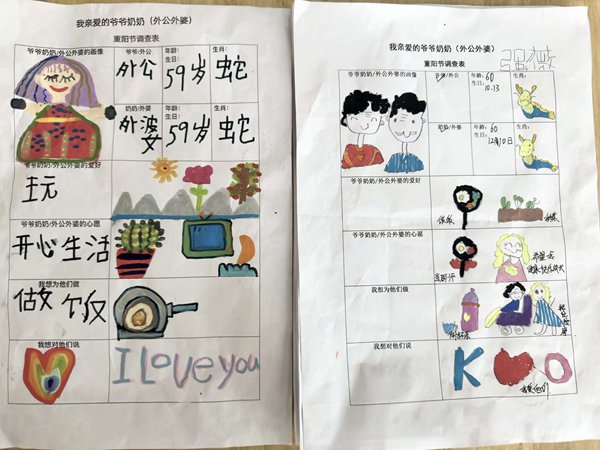 我亲爱的爷爷奶奶（外公外婆）
重阳节调查表
爷爷奶奶/外公外婆的画像
爷爷/外公
外公
年龄：
生日：
59岁
生肖：
蛇
奶奶/外婆
外婆
年龄：
生日：
59岁
生肖：
蛇
爷爷奶奶/外公外婆的爱好
玩
爷爷奶奶/外公外婆的心愿
开心生活
我想为他们做
做饭
我想对他们说
I Love you
我亲爱的爷爷奶奶（外公外婆）
重阳节调查表
爷爷奶奶/外公外婆的画像
爷爷/外公
年龄：60
生日：
10.13
生肖：
奶奶/外婆
年龄：60
生日：
12月10日
生肖：
爷爷奶奶/外公外婆的爱好
爷爷奶奶/外公外婆的心愿
我想为他们做
我想对他们说
K O